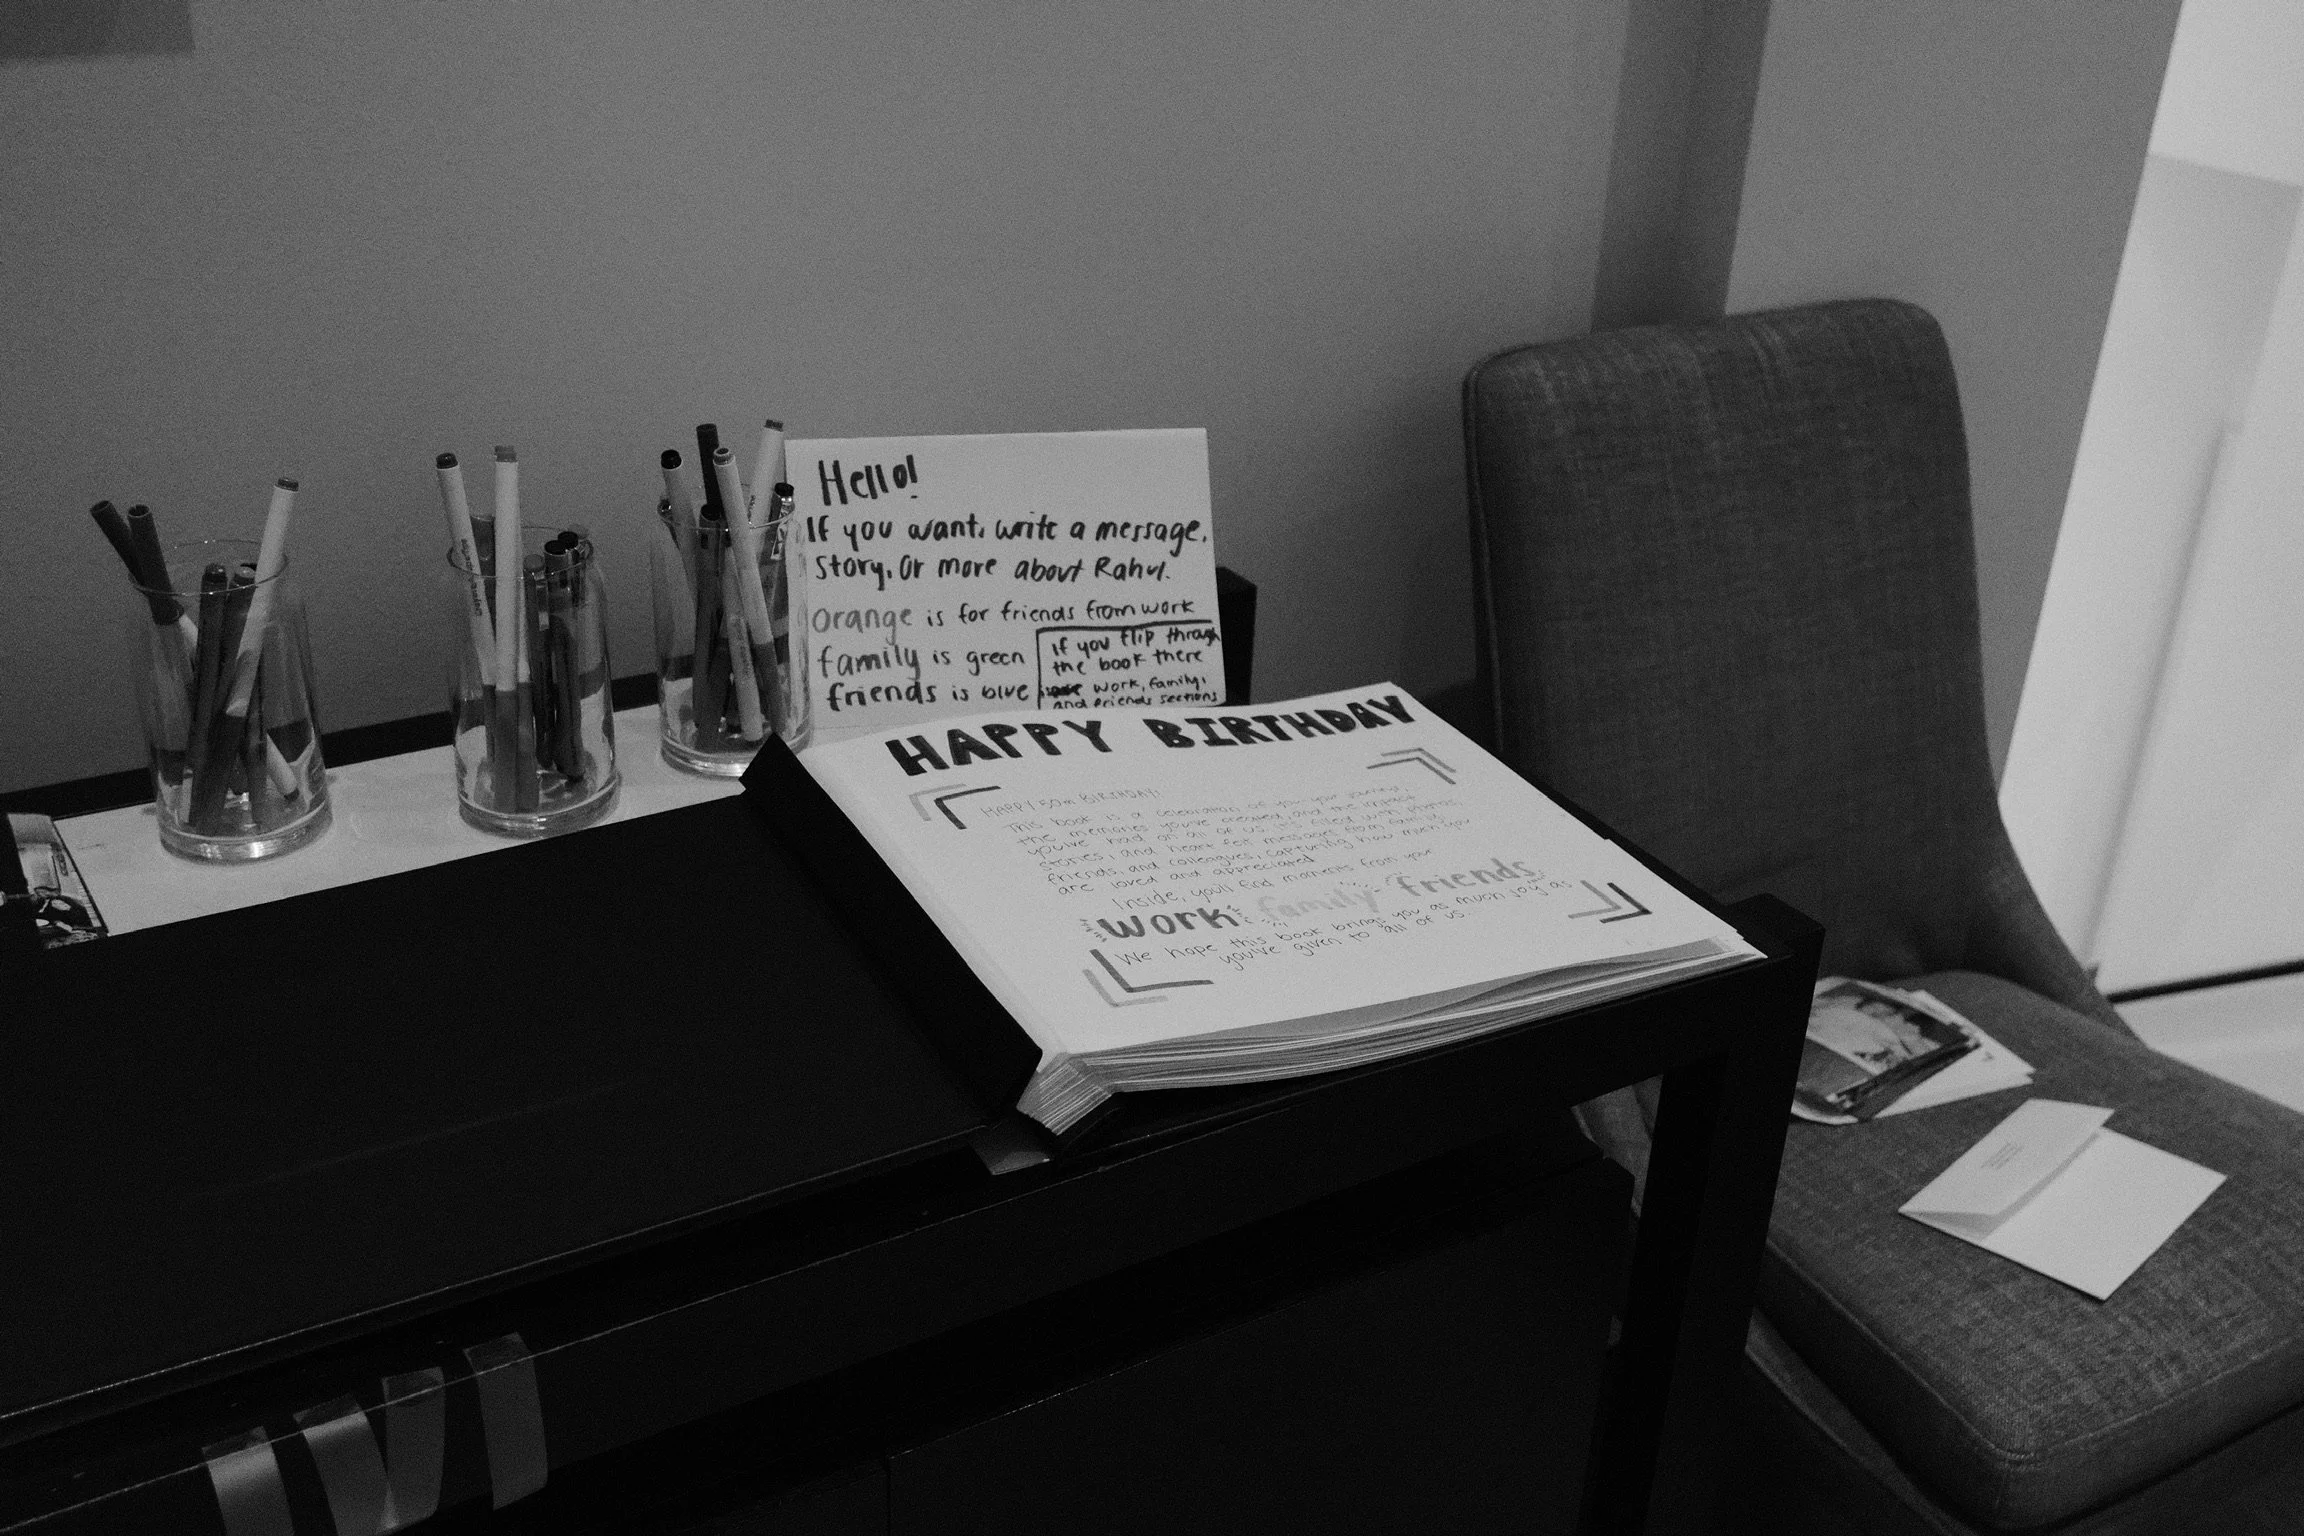 Hello!
If you want, write a message,
story, or more about Rahul.
orange is for friends from work
family is green
friends is blue
if you flip through
the book there
work, family,
and friends sections
HAPPY BIRTHDAY
HAPPY 50th BIRTHDAY!
This book is a celebration of you, your journey,
the memories you've created, and the impact
you've had on all of us. It's filled with photos,
stories, and heart felt messages from family,
friends, and colleagues, capturing how much you
are loved and appreciated
Inside, you'll find moments from your
work family friends
We hope this book brings you as much joy as
you've given to all of us.